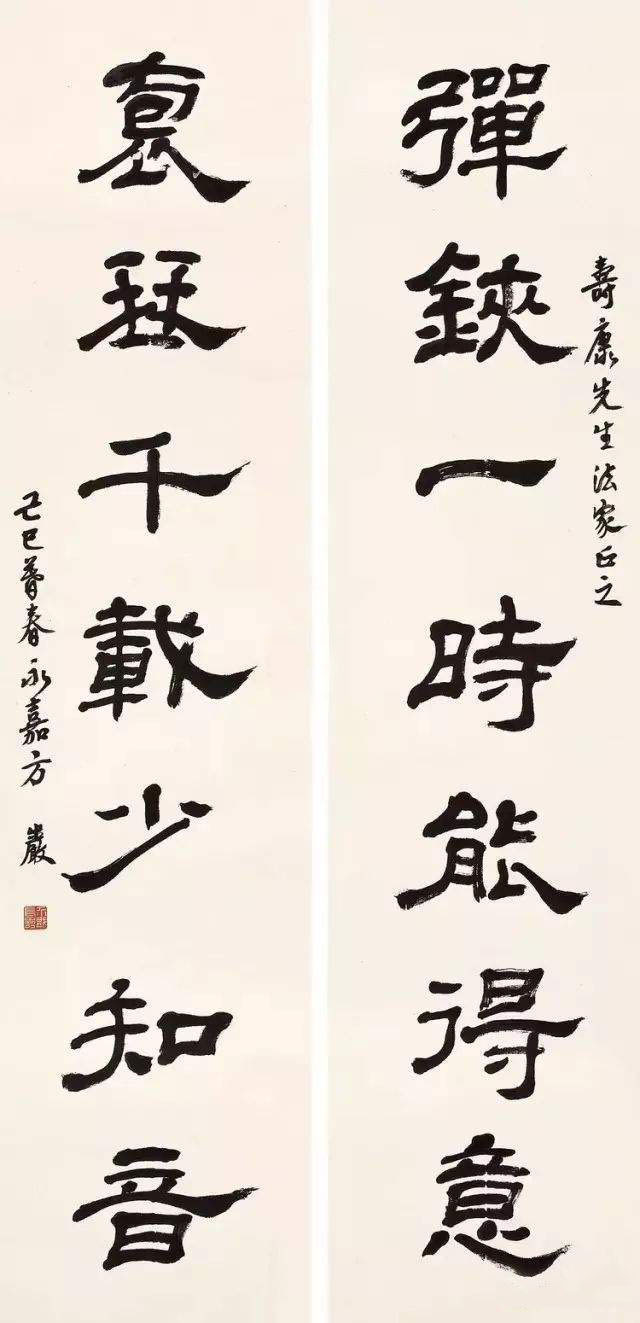 壽康先生法家正之
彈鋏一時能得意
袌琹千載少知音
己巳暮春永嘉方巖